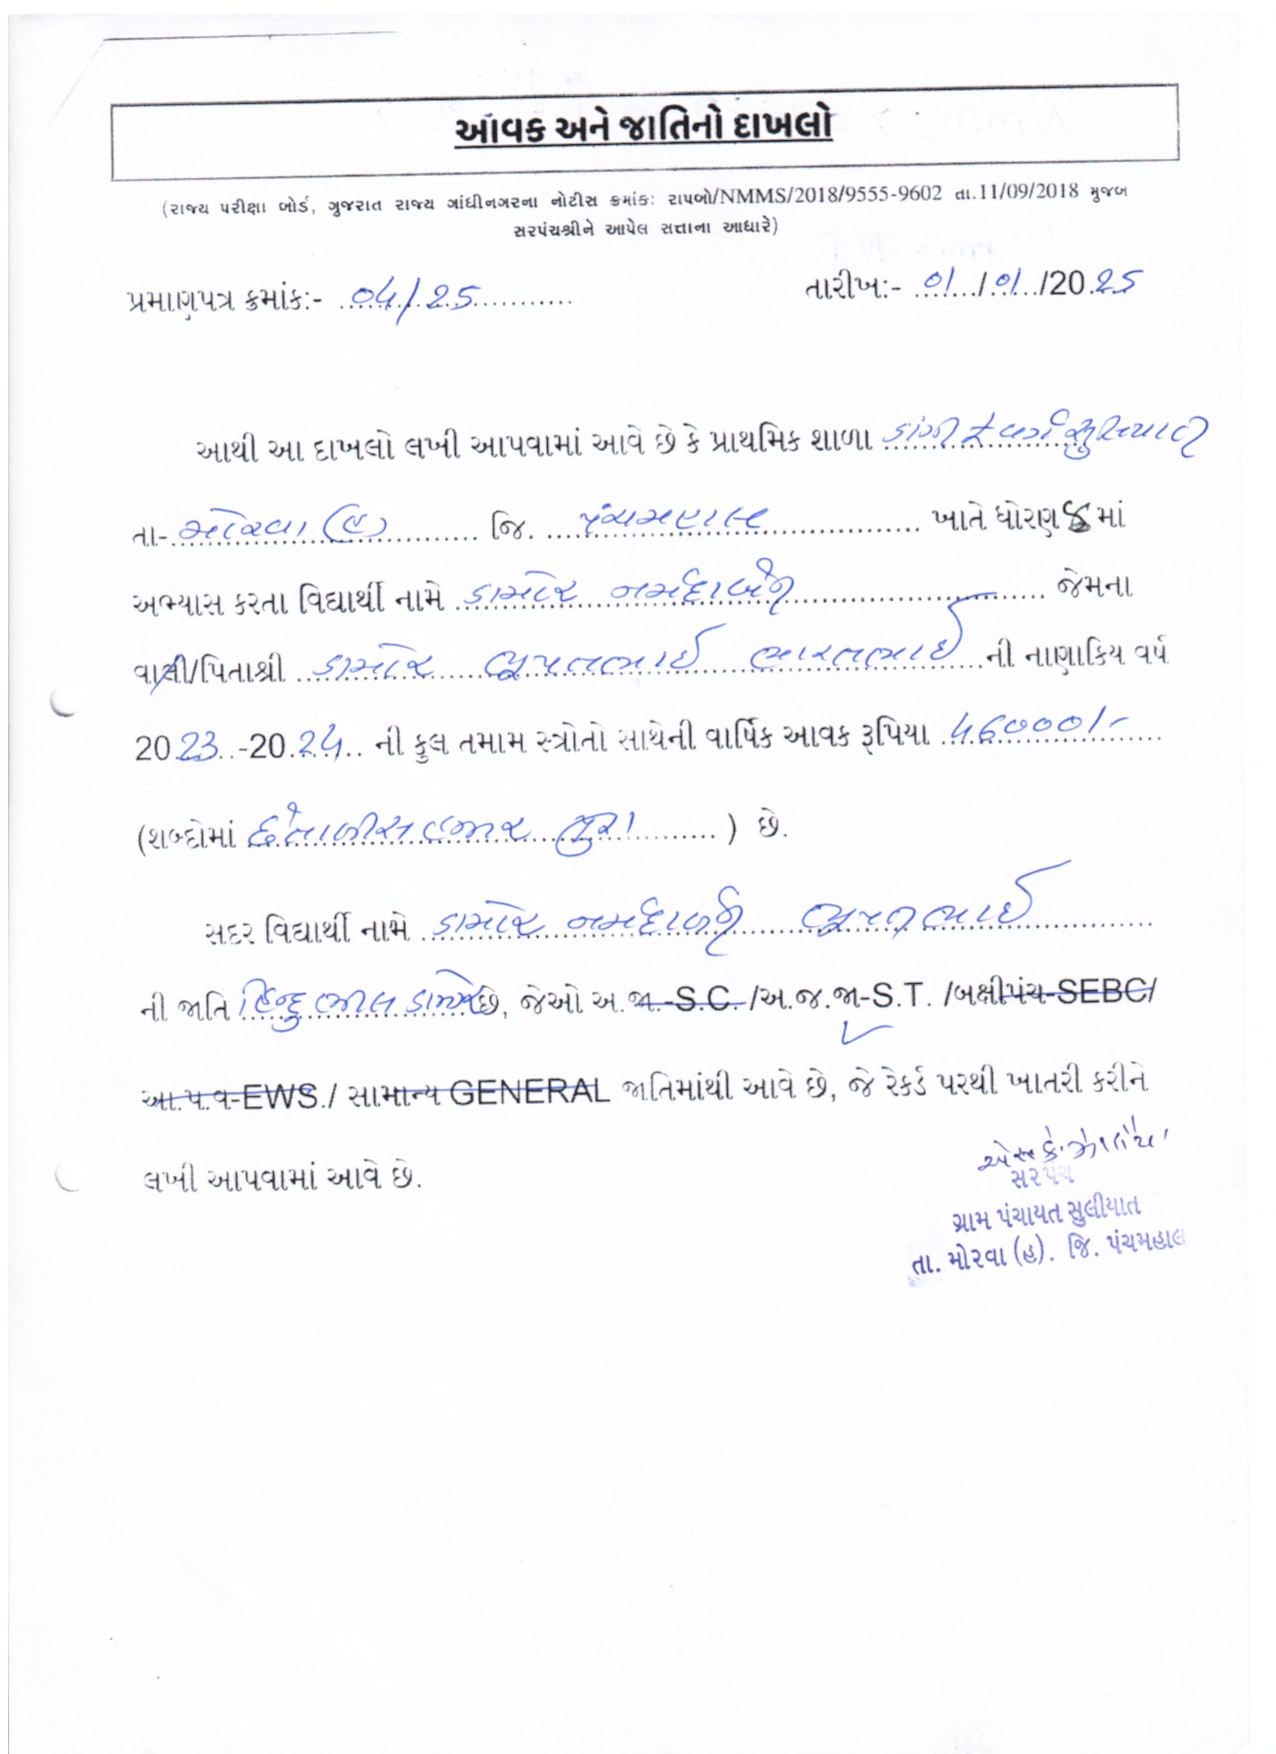 આવક અને જાતિનો દાખલો
(રાજ્ય પરીક્ષા બોર્ડ, ગુજરાત રાજ્ય ગાંધીનગરના નોટીસ ક્રમાંક: રાપબો/NMMS/2018/9555-9602 તા.11/09/2018 મુજબ
સરપંચશ્રીને આપેલ સત્તાના આધારે)
પ્રમાણપત્ર ક્રમાંક:- 04/25 તારીખ:- 01/01/2025
આથી આ દાખલો લખી આપવામાં આવે છે કે પ્રાથમિક શાળા
તા- મોરવા (હ) જિ. પંચમહાલ ખાતે ધોરણ 8 માં
અભ્યાસ કરતા વિદ્યાર્થી નામે ડામોર નર્મદાબેન જેમના
વાલી/પિતાશ્રી ડામોર ભારતભાઈ ની નાણાકિય વર્ષ
2023-2024 ની કુલ તમામ સ્ત્રોતો સાથેની વાર્ષિક આવક રૂપિયા 46000/-
(શબ્દોમાં છેતાળીસ હજાર પુરા ) છે.
સદર વિદ્યાર્થી નામે ડામોર
ની જાતિ હિન્દુ ભીલ ડામોર છે, જેઓ અ.જા.-S.C. /અ.જ.જા-S.T. /બક્ષીપંચ-SEBC/
આ.પ.વ-EWS./ સામાન્ય GENERAL જાતિમાંથી આવે છે, જે રેકર્ડ પરથી ખાતરી કરીને
લખી આપવામાં આવે છે.
સરપંચ
ગ્રામ પંચાયત સુલીયાત
તા. મોરવા (હ). જિ. પંચમહાલ